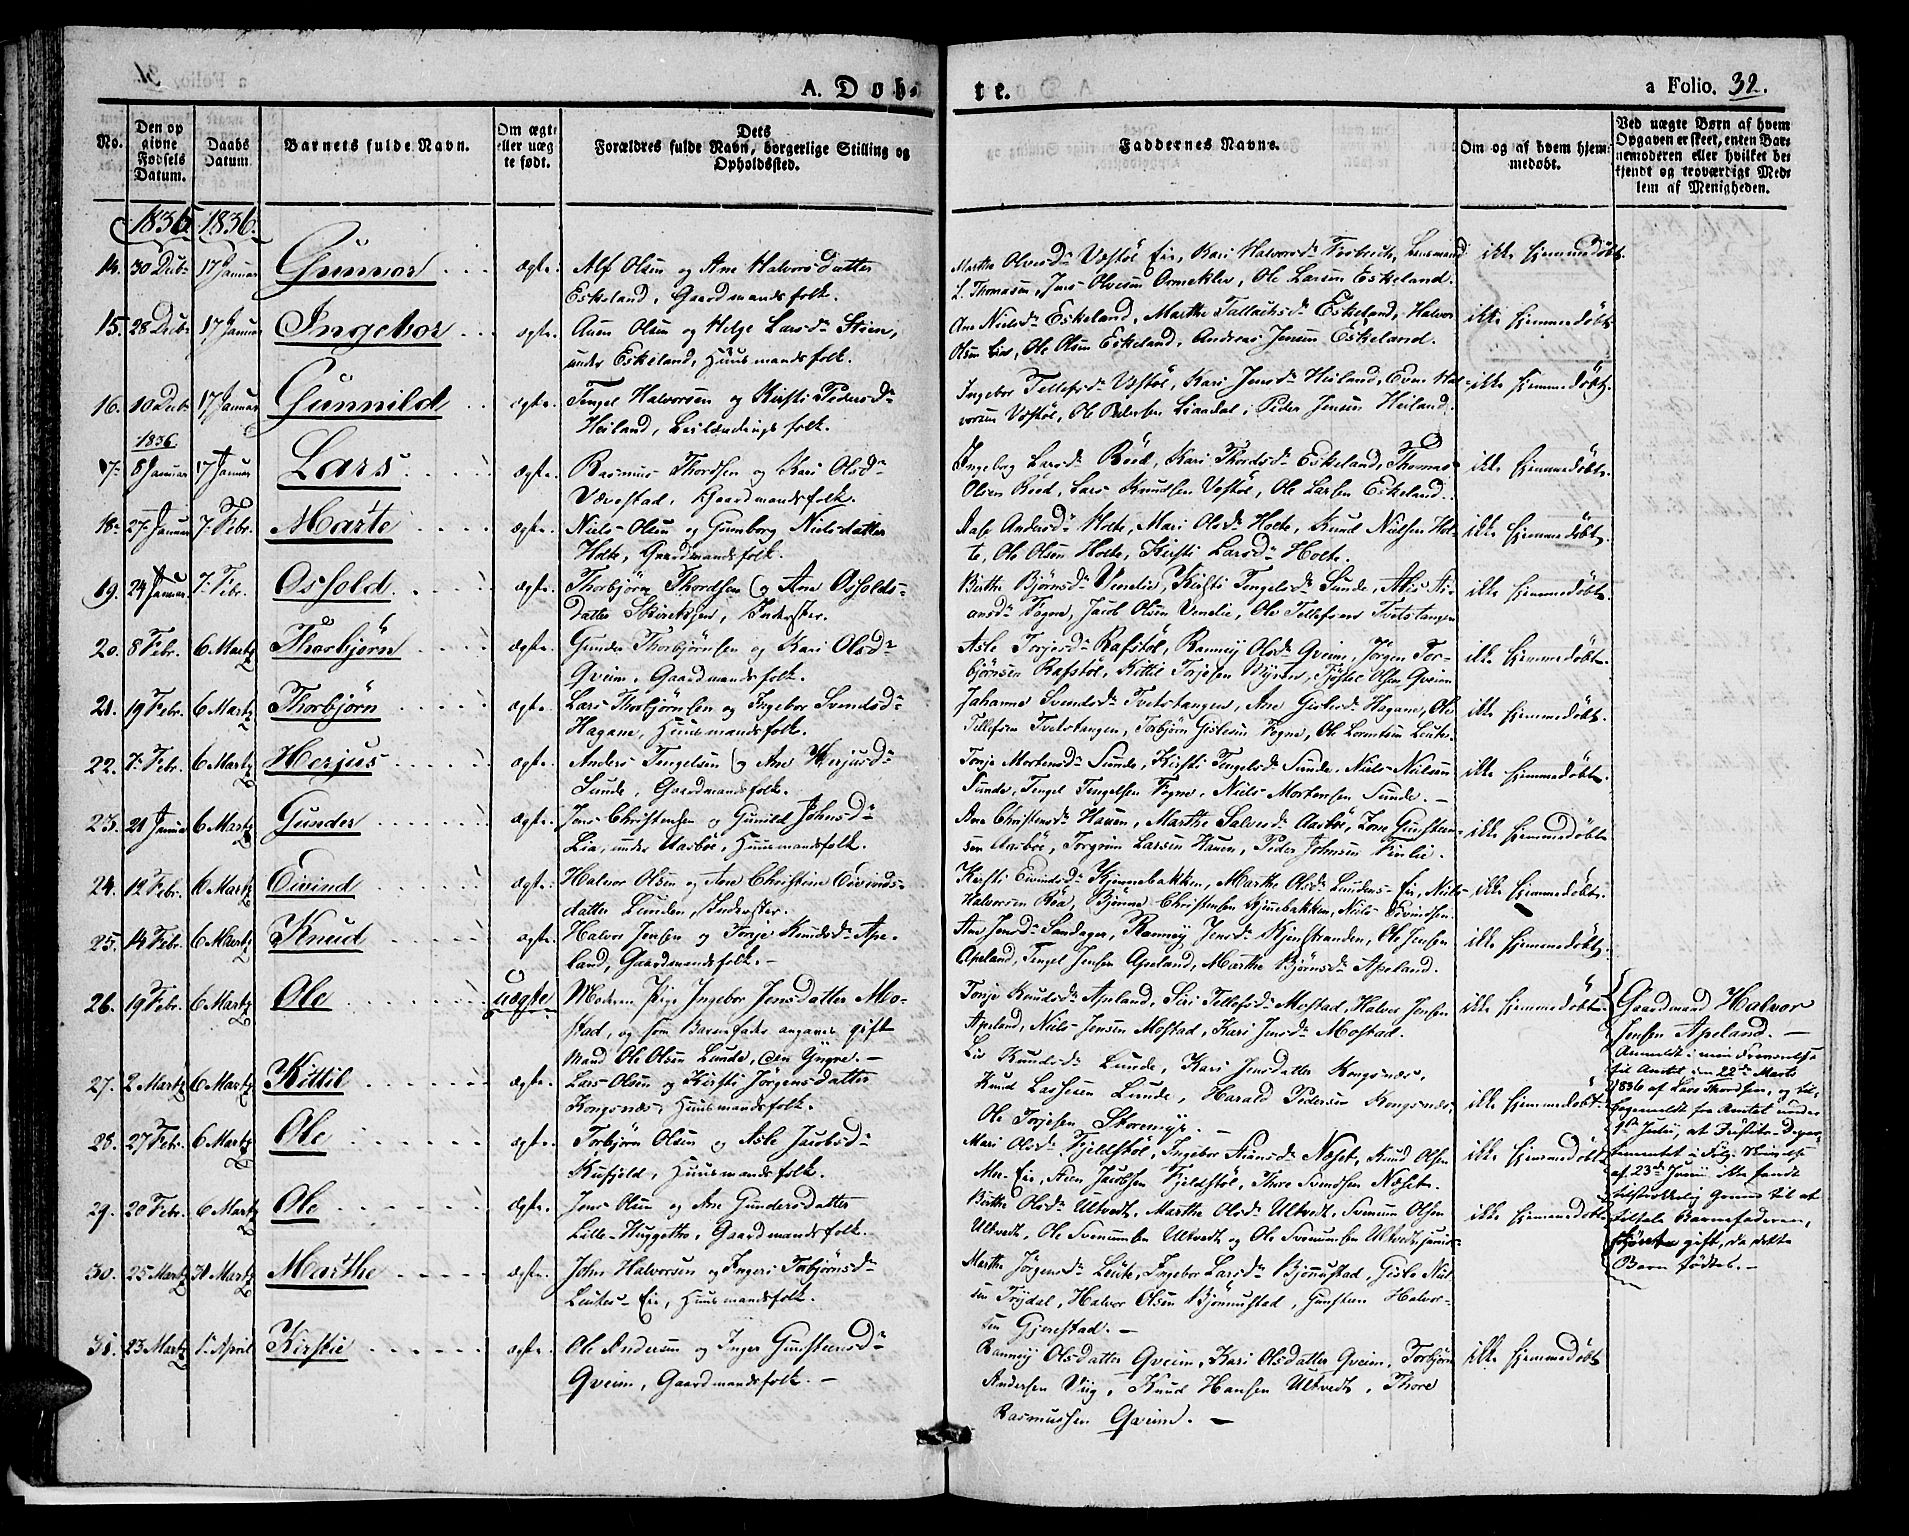 a Folio. 31.
A. Døb-
te.
a Folio. 32.
No.
Den op
givne
Fødsels
Datum.
Daabs
Datum.
Barnets fulde Navn.
Om ægte
eller uæg
te født.
Dets
Forældres fulde Navn, borgerlige Stilling og
Opholdssted.
Faddernes Navne.
Om og af hvem hjem-
medøbt.
Ved uægte Børn af hvem
Opgaven er skeet, enten Bar
nemoderen eller hvilket be
kjendt og troværdigt Med
lem af Menigheden.
1836 1836.
14. 30 Decbr 17 Januar Gunvor ægte. Alf Olsen og Ane Halvorsdatter
Eskeland, Gaardmandsfolk.
Marthe Olvesdr Vestøl Eie, Kari Halvorsdr, Lensmand
L. Thomasen, Jens Olvesen Ormeklev, Ole Larsen Eskeland.
ikke hjemmedøbt.
15. 28 Decbr 17 Januar Ingebor ægte. Auen Olsen og Helge Larsdr Steen,
under Eskeland, Huusmandsfolk.
Ane Nielsdr Eskeland, Marthe Tallachsdr Eskeland, Halvor
Olsen, Ole Olsen Eskeland, Andreas Jensen Eskeland.
ikke hjemmedøbt.
16. 10 Decbr 17 Januar Gunnild ægte. Tengel Halvorsen og Kirsti Pedersdr
Heiland, Leilændingsfolk.
Ingebor Tellefsdr Vestøl, Kari Jensdr Heiland, Even Hal-
vorsen Vestøl, Ole Pedersen Liaadal, Peder Jensen Heiland.
ikke hjemmedøbt.
1836
17. 8 Januar 17 Januar Lars ægte. Rasmus Thordsen og Kari Olsdr
Vævestad, Gaardmandsfolk.
Ingeborg Larsdr Röed, Kari Thordsdr Eskeland, Thomas
Olsen Röed, Lars Knudsen Vestøl, Ole Larsen Eskeland.
ikke hjemmedøbt.
18. 27 Januar 7. Febr. Marte ægte. Niels Olsen og Gunborg Nielsdatter
Holte, Gaardmandsfolk.
Aase Andersdr Holte, Mari Olsdr Holte, Knud Nielsen Hol-
te, Ole Olsen Holte, Kirsti Larsdr Holte.
ikke hjemmedøbt.
19. 24 Januar 7. Febr. Osfold ægte. Thorbjørn Thordsen og Ane Osfolds-
datter, Inderster.
Berthe Bjørnsdr Venelie, Kirsti Tengelsdr Sunde, Alis
Fogne, Jacob Olsen Venelie, Ole Tellefsen Tvetstangen
ikke hjemmedøbt.
20. 8 Febr. 6 Martz Thorbjørn ægte. Gunder Thorbjørnsen og Kari Olsdr
Qveim, Gaardmandsfolk.
Asle Torjesdr Rafstøl, Rannei Olsdr Qveim, Jørgen Tor-
bjørnsen Rafstøl, Kittil Torjesen, Olsen Qveim
ikke hjemmedøbt.
21. 19 Febr. 6 Martz Thorbjørn ægte. Lars Thorbjørnsen og Ingebor Svendsdr
Hagane, Huusmandsfolk.
Johanne Svendsdr Tvetstangen, Ane Gislesdr Hagane, Ole
Tellefsen Tvetstangen, Torbjørn Gislesen Fogne, Ole Lorentsen Leuter.
ikke hjemmedøbt.
22. 7. Febr. 6 Martz Herjus ægte. Anders Tengelsen og Ane Herjusdr
Sunde, Gaardmandsfolk.
Tonje Mortensdr Sunde, Kirsti Tengelsdr Sunde, Niels Nielsen
Sunde, Tengel Tengelsen Fogne, Niels Mortensen Sunde. —
ikke hjemmedøbt.
23. 21 Januar 6 Martz Gunder ægte. Jens Christensen og Gunild Johnsdr
Lia, under Aasbøe, Huusmandsfolk.
Ane Christensdr Hauen, Marthe Salvesdr Aasbøe, Tone Gunsteen-
sen Aasbøe, Torgrim Larsen Hauen, Peder Johnsen.
ikke hjemmedøbt
24. 12 Febr. 6 Martz Eivind ægte. Halvor Olsen og Ane Christine Eivinds-
datter Lunden, Inderster.
Kirsti Eivindsdr Kjennebakken, Marthe Olsdr Lundens-Eie, Niels
Halvorsen, Bjønne Christensen Kjennebakken, Niels Eivindsen.
ikke hjemmedøbt.
25. 14 Febr. 6 Martz Knud ægte. Halvor Jensen og Tonje Knudsdr Ape-
land, Gaardmandsfolk. —
Ane Jensdr Sandager, Rannei Jensdr Kjenstranden, Ole Jensen
Apeland, Tengel Jensen Apeland, Marthe Bjørnsdr Apeland.
ikke hjemmedøbt.
26. 19 Febr. 6 Martz Ole uægte Moderen Pige Ingebor Jensdatter Mo-
stad, og som Barnefader angaves gift
Mand Ole Olsen Lunde, den Yngre. —
Tonje Knudsdr Apeland, Siri Tellefsdr Mostad, Halvor Jensen
Apeland, Niels Jensen Mostad, Kari Jensdr Mostad.
ikke hjemmedøbt.
Gaardmand Halvor
Jensen Apeland. —
Anmeldt i min Fremsendelse
til Amtet den 22de Marts
1836 af Lars Thordsen, og til-
bagemeldt fra Amtet under
Julii, at Justits-Depar-
tementet i Følge Skrivelse
af 23de Junii ikke fandt
tilstrækkelig Grund til at
tiltale Barnefaderen,
gift, da dette
Barn fødtes. —
27. 2 Martz 6 Martz Kittil ægte. Lars Olsen og Kirsti Jørgensdatter
Kongsnæs, Huusmandsfolk.
Liv Knudsdr Lunde, Kari Jensdatter Kongsnæs,
Knud Lassesen Lunde, Harald Pedersen Kongsnæs,
Ole Torjesen Storemyr. —
ikke hjemmedøbt
28. 27 Febr. 6 Martz Ole ægte. Torbjørn Olsen og Asle Jacobsdr
Kufjeld, Huusmandsfolk.
Mari Olsdr Fjeldstøl, Ingebor Næset, Knud Olsen
Mo-Eie, Jacobsen Fjeldstøl, Thore Svendsen Næset.
ikke hjemmedøbt
29. 20 Febr. 6 Martz Ole ægte. Jens Olsen og Ane Gundersdatter
Lille-Huggetho, Gaardmandsfolk.
Berthe Olsdr Ultvedt, Marthe Olsdr Ultvedt, Svenum Olsen
Ultvedt, Ole Svenumsen Ultvedt og Ole Svenumsen Ultvedt junior
ikke hjemmedøbt
30. 25 Martz 31 Martz Marthe ægte. John Halvorsen og Ingeri Torbjørnsdr
Leutes-Eie, Huusmandsfolk.
Marthe Jørgensdr Leute, Ingebor Larsdr Bjønnustad, Gisle Niel-
sen Trydal, Halvor Olsen Bjønnustad, Gunsteen Halvor-
sen Gjerestad. —
31. 23 Martz 1. April Kirstie ægte. Ole Andersen og Inger Gunsteensdr
Qveim, Gaardmandsfolk. —
Rannei Olsdatter Qveim, Kari Olsdatter Qveim, Torbjørn
Andersen Viig, Knud Hansen Ultvedt, Thore
Rasmussen Qveim. —
ikke hjemmedøbt